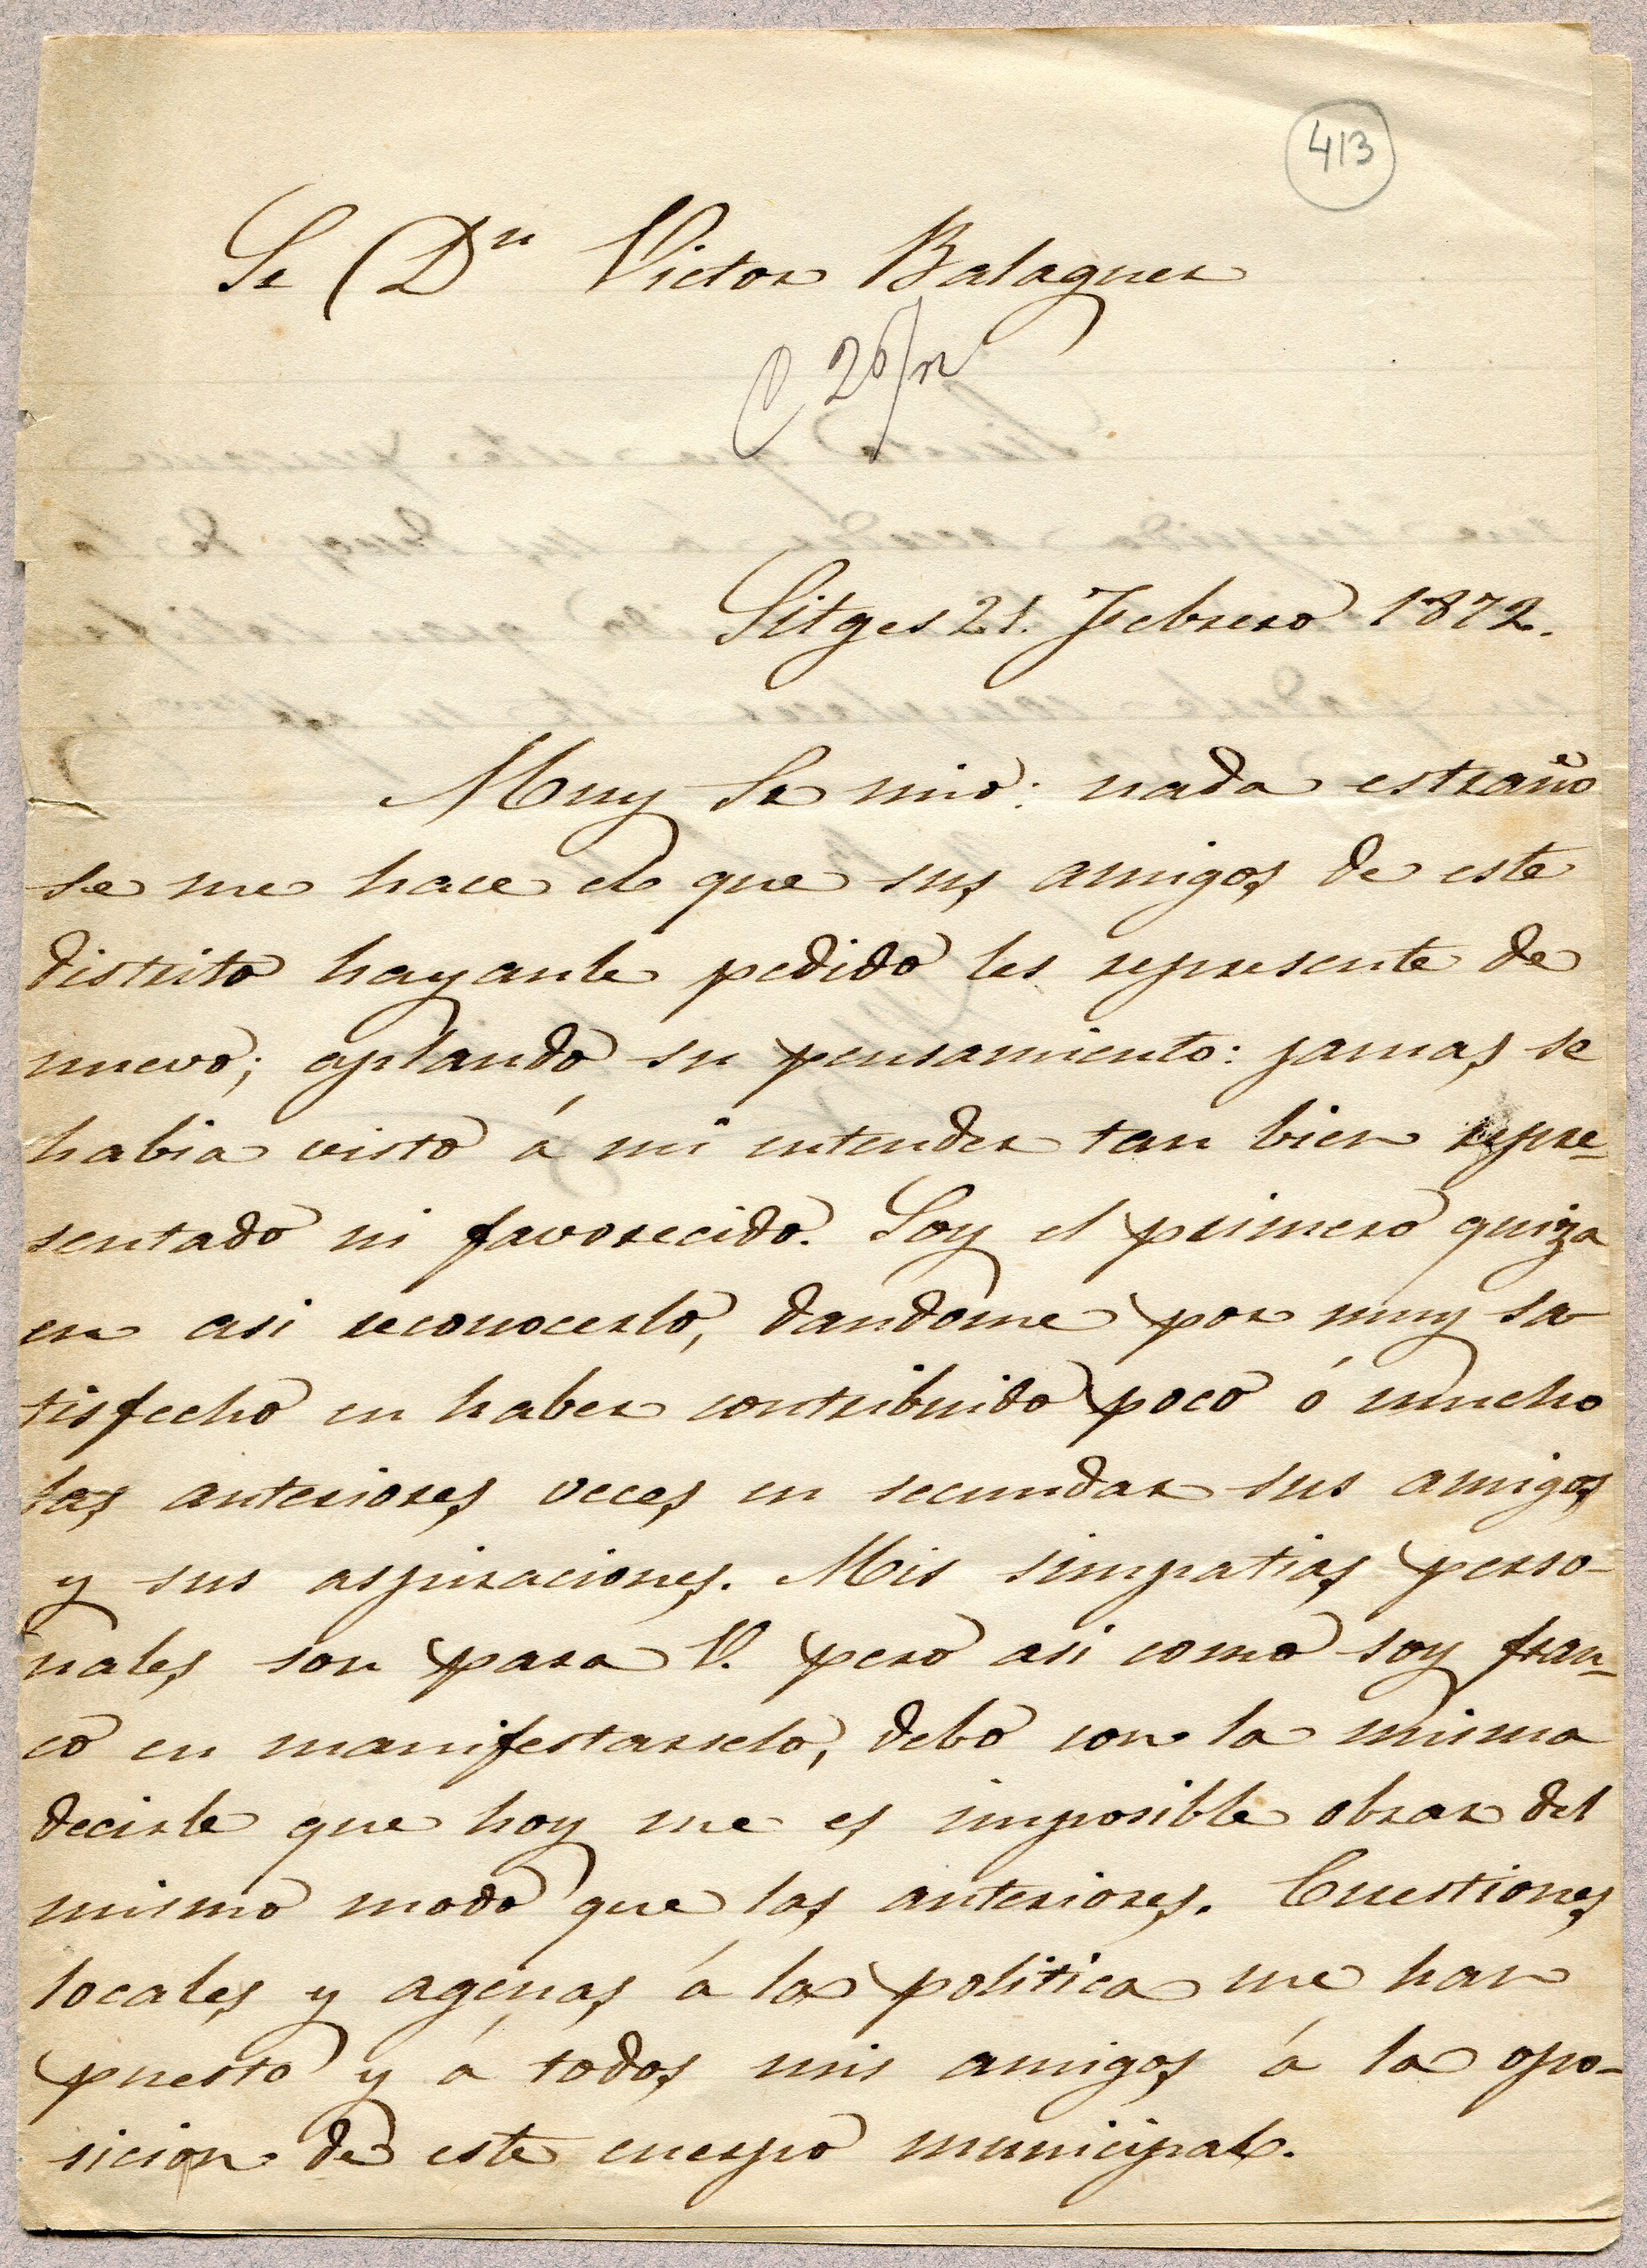 413
Sr Dn Victor Balaguer
C 26/
Sitges 21. Febrero 1872.
Muy Sr mio: nada estraño
se me hace el que sus amigos de este
distrito hayanle pedido les represente de
nuevo; aplaudo su pensamiento: jamas se
habia visto á mi entender tan bien repre-
sentado ni favorecido. Soy el primero quiza
en asi reconocerlo, dandome por muy sa
tisfecho en haber contribuido poco ó mucho
las anteriores veces en secundar sus amigos
y sus aspiraciones. Mis simpatias perso-
nales son para V. pero asi como soy fran-
co en manifestarselo, debo con la misma
decirle que hoy me es imposible obrar del
mismo modo que las anteriores. Cuestiones
locales y agenas á la politica me han
puesto y á todos mis amigos á la opo-
sicion de este cuerpo municipal.